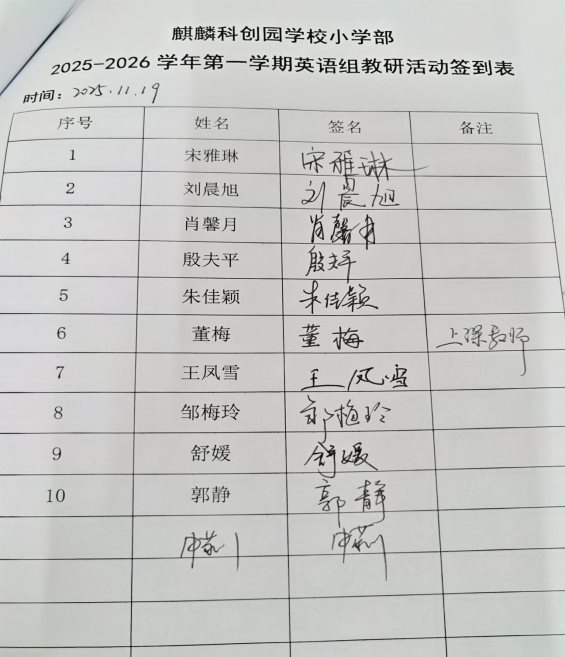 麒麟科创园学校小学部
2025-2026 学年第一学期英语组教研活动签到表
时间：2025.11.19
序号 姓名 签名 备注
1 宋雅琳 宋雅琳
2 刘晨旭 刘晨旭
3 肖馨月 肖馨月
4 殷夫平 殷夫平
5 朱佳颖 朱佳颖
6 董梅 董梅 上课教师
7 王凤雪 王凤雪
8 邹梅玲 邹梅玲
9 舒媛 舒媛
10 郭静 郭静